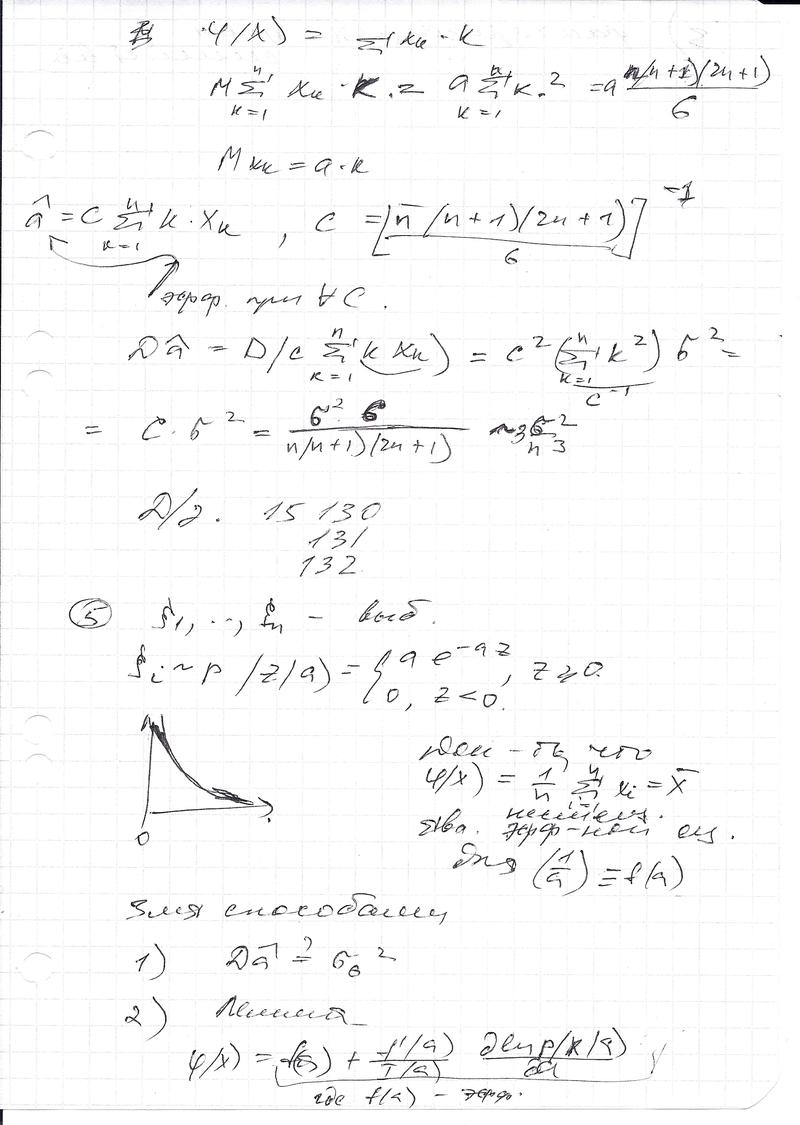 φ(x) = Σ xₖ · k
M Σₖ₌₁ⁿ xₖ · k = a Σₖ₌₁ⁿ k² = a n(n+1)(2n+1)/6
M xₖ = a · k
â = c Σₖ₌₁ⁿ k · xₖ , c = [n(n+1)(2n+1)/6]⁻¹
эфф. при ∀ c.
Dâ = D(c Σₖ₌₁ⁿ k xₖ) = c² (Σₖ₌₁ⁿ k²) σ² =
c⁻¹
= c · σ² = σ² 6 / n(n+1)(2n+1) ~ 3σ²/n³
D/з. 15 130
131
132
⑤ ξ₁, .., ξₙ – выб.
ξᵢ ~ p(z/a) = { a e^(-az), z ≥ 0
0, z < 0.
0
Док-ть, что
φ(x) = 1/n Σᵢ₌₁ⁿ xᵢ = x̄
несмещ.
явл. эфф-ной оц.
для (1/a) ≡ f(a)
2мя способами
1) Dâ ≟ σ₆²
2) Лемма
φ(x) = f(a) + f'(a)/I(a) ∂ln p(x/a)/∂a
где f(a) – эфф.